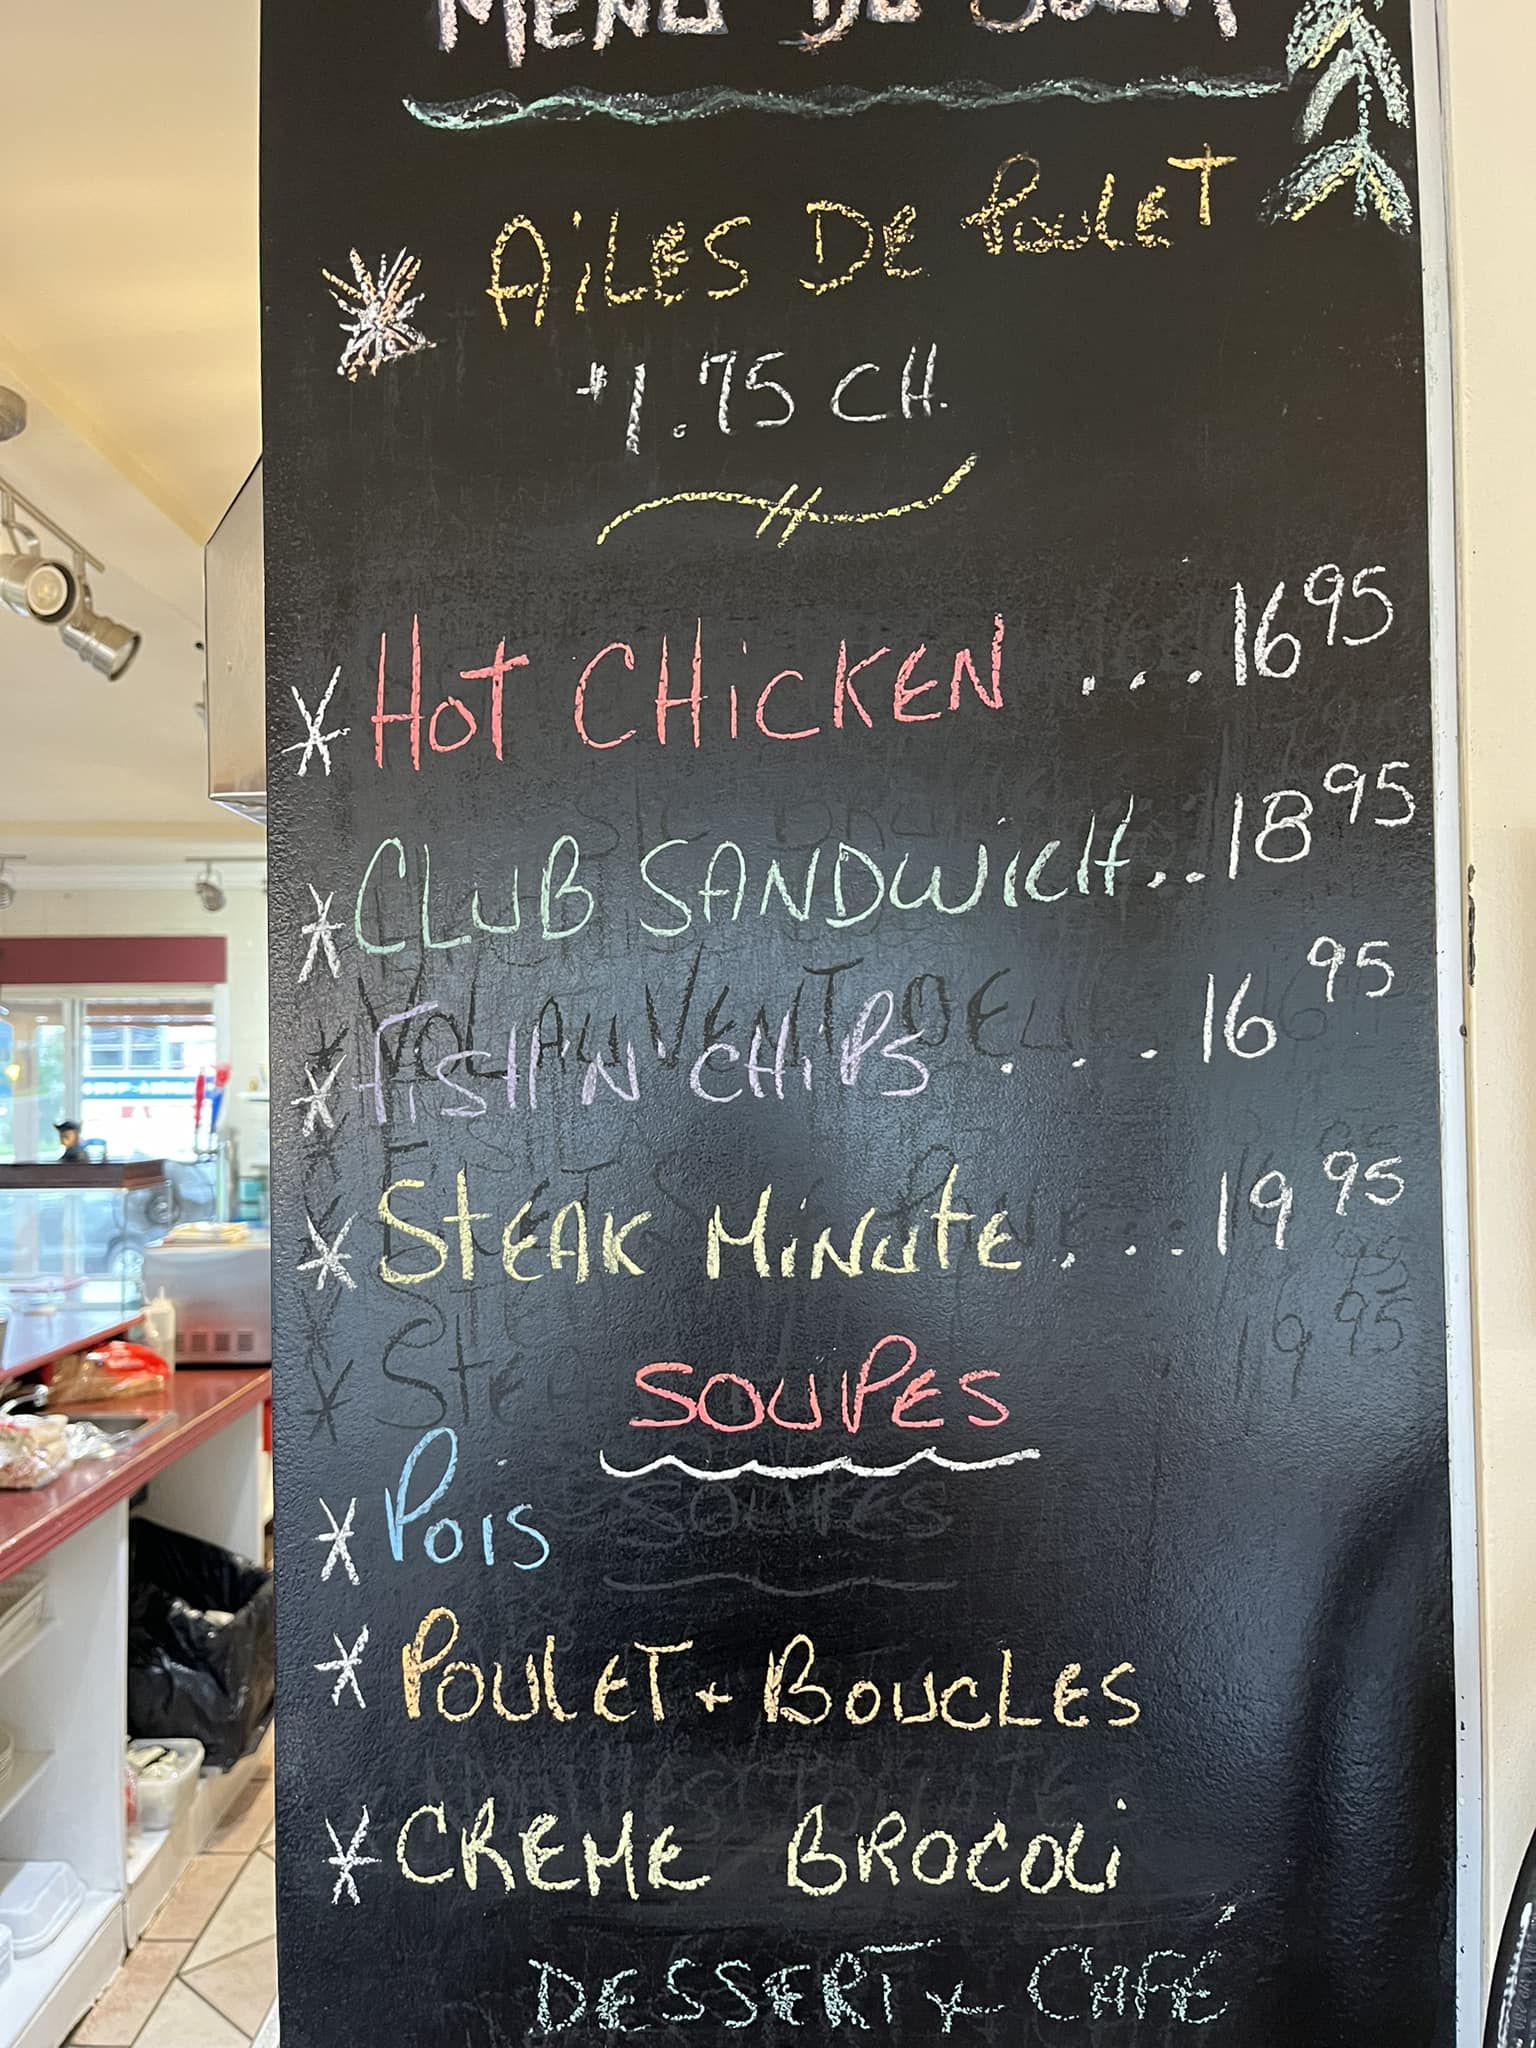 MENU DU JOUR
AiLES DE POULET
$1.75 CH.
* HOT CHiCKEN ... 16 95
* CLUB SANDWiCH .. 18 95
* FiSH'N CHiPS ... 16 95
* STEAK MiNUTE ... 19 95
SOUPES
* POiS
* POULET + BOUCLES
* CREME BROCOLi
DESSERT + CAFÉ